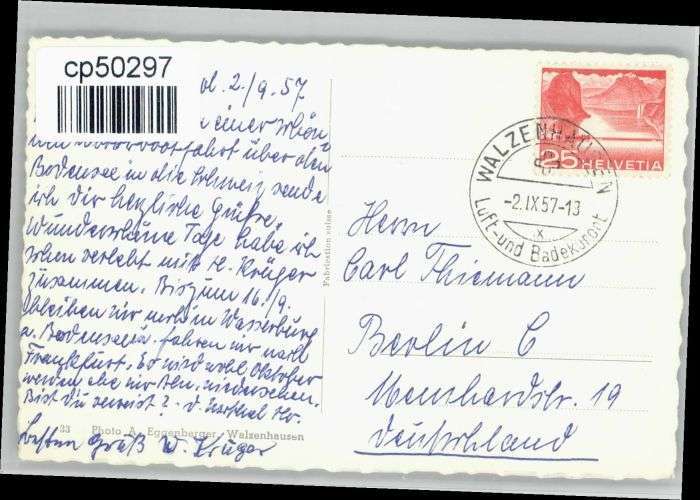 cp50297
2./9. 57
einer schön-
fahrt über den
Bodensee in die Schweiz sende
ich dir herzliche Grüße.
Wunderschöne Tage habe ich
schon verlebt mit H. Krüger
zusammen. Bis zum 16./9.
bleiben wir noch in Wasserburg
a. Bodensee u. fahren wir nach
Frankfurt. Es wird wohl Oktober
werden ehe wir wiedersehen.
Bist du verreist?
23 Photo A. Eggenberger, Walzenhausen
besten Gruß W. Krüger
Fabrication suisse
25 HELVETIA
WALZENHAUSEN
-2.IX57-13
X
Luft-und Badekurort
Herrn
Carl Thiemann
Berlin C
19
Deutschland